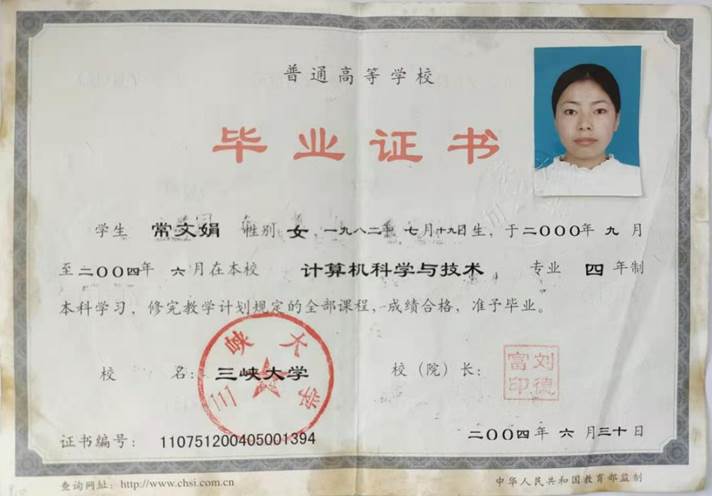 普通高等学校
毕业证书
学生 常文娟 性别 女，一九八二年 七月十九日生，于二〇〇〇年 九 月
至二〇〇四年 六 月在本校 计算机科学与技术 专业 四 年制
本科学习，修完教学计划规定的全部课程，成绩合格，准予毕业。
校 名：三峡大学 校（院）长：
三峡大学
刘德富印
证书编号：110751200405001394
二〇〇四年 六 月三十日
查询网址：http://www.chsi.com.cn
中华人民共和国教育部监制